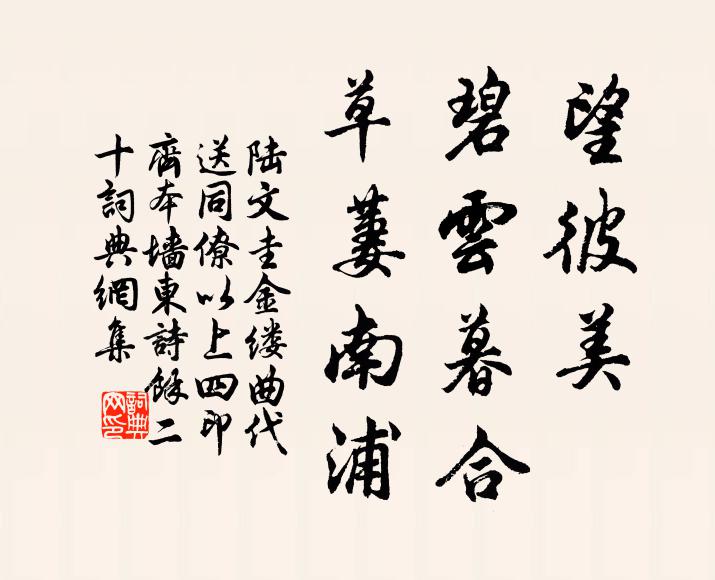 望彼美
碧雲暮合
草萋南浦
陆文圭金缕曲代
送同僚以上四印
齋本墙東詩餘二
十詞典網集
詞典網印